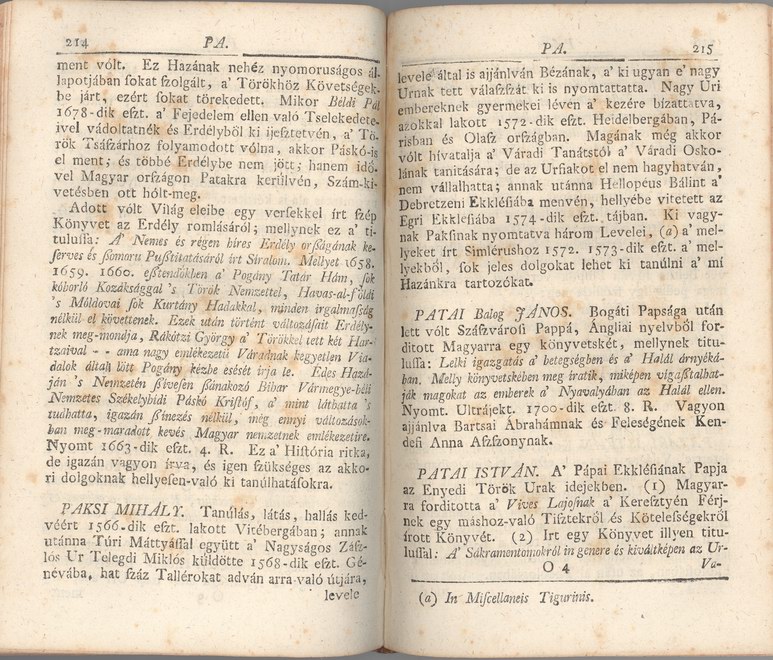 214 PA.
ment vólt. Ez Hazának nehéz nyomoruságos ál-
lapotjában ſokat ſzolgált, a' Törökhöz Követségek-
be járt, ezért ſokat törekedett. Mikor Béldi Pál
1678-dik eſzt. a' Fejedelem ellen való Tselekedete-
ivel vádoltatnék és Erdélyböl ki ijeſztetvén, a' Tö-
rök Tsáſzárhoz folyamodott vólna, akkor Páskó-is
el ment; és többé Erdélybe nem jött; hanem idő-
vel Magyar orſzágon Patakra kerülvén, Szám-ki-
vetésben ott hólt-meg.
Adott vólt Világ eleibe egy verſekkel írt ſzép
Könyvet az Erdély romlásáról; mellynek ez a' ti-
tuluſſa: A' Nemes és régen híres Erdély orſágának ke-
ſerves és ſiomaru Puſtitatásáról írt Siralom. Mellyet 1658.
1659. 1660. eſztendökben a' Pogány Tatár Hám, ſok
kóborló Kozáksággal 's Török Nemzettel, Havas-al-földi
's Móldovai ſok Kurtány Hadakkal, minden irgalmaſság
nélkül el követtenek. Ezek után történt változáſait Erdély-
nek meg-mondja, Rákótzi György a' Törökkel tett két Har-
tzaival - - ama nagy emlékezetü Váradnak kegyetlen Via-
dalok által lött Pogány kézbe esését irja le. Edes Hazá-
ján 's Nemzetén ſzíveſen ſzánakozó Bihar Vármegye-béli
Nemzetes Székelyhidi Páskó Kriſtóf, a' mint láthatta 's
tudhatta, igazán ſzínezés nélkül, még ennyi változások-
ban meg-maradott kevés Magyar nemzetnek emlékezetire.
Nyomt 1663-dik eſzt. 4. R. Ez a' Hiſtória ritka,
de igazán vagyon írva, és igen ſzükséges az akko-
ri dolgoknak hellyeſen-való ki tanúlhatáſokra.
PAKSI MIHÁLY. Tanúlás, látás, hallás ked-
véért 1566-dik eſzt. lakott Vitébergában; annak
utánna Túri Máttyáſſal együtt a' Nagyságos Záſz-
lós Ur Telegdi Miklós küldötte 1568-dik eſzt. Gé-
névába, hat ſzáz Tallérokat adván arra való útjára,
levele
PA. 215
levele által is ajjánlván Bézának, a' ki ugyan e' nagy
Urnak tett válaſzſzát ki is nyomtattatta. Nagy Uri
embereknek gyermekei lévén a' kezére bízattatva,
azokkal lakott 1572-dik eſzt. Heidelbergában, Pá-
risban és Olaſz orſzágban. Magának még akkor
vólt hívatalja a' Váradi Tanátstól a' Váradi Osko-
lának tanitására; de az Urfiakot el nem hagyhatván,
nem vállalhatta; annak utánna Hellopéus Bálint a'
Debretzeni Ekkléſiába menvén, hellyébe vitetett az
Egri Ekkléſiába 1574-dik eſzt. tájban. Ki vagy-
nak Pakſinak nyomtatva három Levelei, (a) a' mel-
lyeket írt Simlérushoz 1572. 1573-dik eſzt. a' mel-
lyekböl, ſok jeles dolgokat lehet ki tanúlni a' mi
Hazánkra tartozókat.
PATAI Balog JÁNOS. Bogáti Papsága után
lett vólt Száſzvároſi Pappá, Ángliai nyelvböl for-
ditott Magyarra egy könyvetskét, mellynek titu-
luſſa: Lelki igazgatás a' betegségben és a' Halál árnyéká-
ban. Melly könyvetskében meg iratik, miképen vigaſztalhat-
ják magokat az emberek a' Nyavalyában az Halál ellen.
Nyomt. Ultrájekt. 1700-dik eſzt. 8. R. Vagyon
ajjánlva Bartsai Abrahámnak és Feleségének Ken-
deſi Anna Aſzſzonynak.
PATAI ISTVÁN. A' Pápai Ekkléſiának Papja
az Enyedi Török Urak idejekben. (1) Magyar-
ra forditotta a' Vives Lajoſnak a' Keresztyén Férj-
nek egy máshoz-való Tiſztekröl és Kötelességekröl
írott Könyvét. (2) Irt egy Könyvet illyen titu-
luſſal: A' Sákramentomokról in genere és kiváltképen az Ur-
O 4 Va-
(a) In Miſcellaneis Tigurinis.